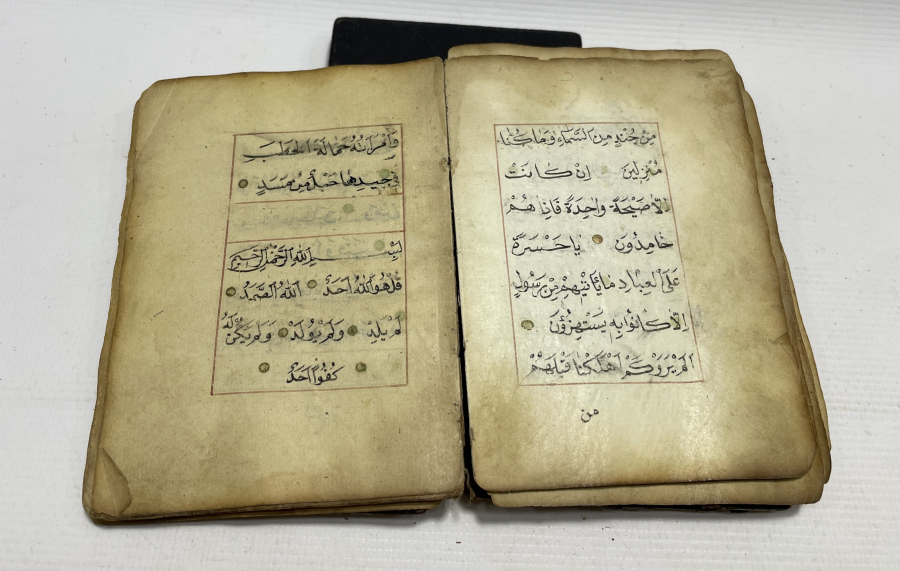 مِنْ جُنْدٍ مِنَ السَّمَاءِ وَمَا كُنَّا
مُنْزِلِينَ اِنْ كَانَتْ
اِلَّا صَيْحَةً وَاحِدَةً فَاِذَا هُمْ
خَامِدُونَ يَا حَسْرَةً
عَلَى الْعِبَادِ مَا يَأْتِيهِمْ مِنْ رَسُولٍ
اِلَّا كَانُوا بِهِ يَسْتَهْزِؤُنَ
اَلَمْ يَرَوْا كَمْ اَهْلَكْنَا قَبْلَهُمْ
من
وَامْرَاَتُهُ حَمَّالَةَ الْحَطَبِ
فِي جِيدِهَا حَبْلٌ مِنْ مَسَدٍ
بِسْمِ اللّٰهِ الرَّحْمٰنِ الرَّحِيمِ
قُلْ هُوَ اللّٰهُ اَحَدٌ اَللّٰهُ الصَّمَدُ
لَمْ يَلِدْ وَلَمْ يُولَدْ وَلَمْ يَكُنْ لَهُ
كُفُوًا اَحَدٌ